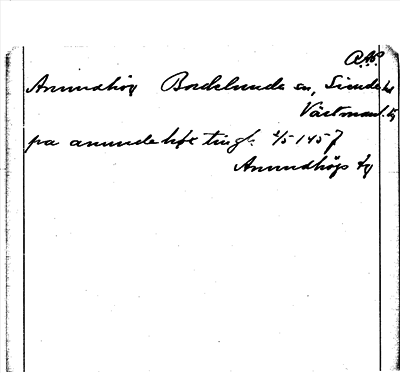 RAP
Anundhög Badelunda sn, Siende hd
Västmanl. lg
pa anunda høx tingh 2/5 1457
Anundhögs tg